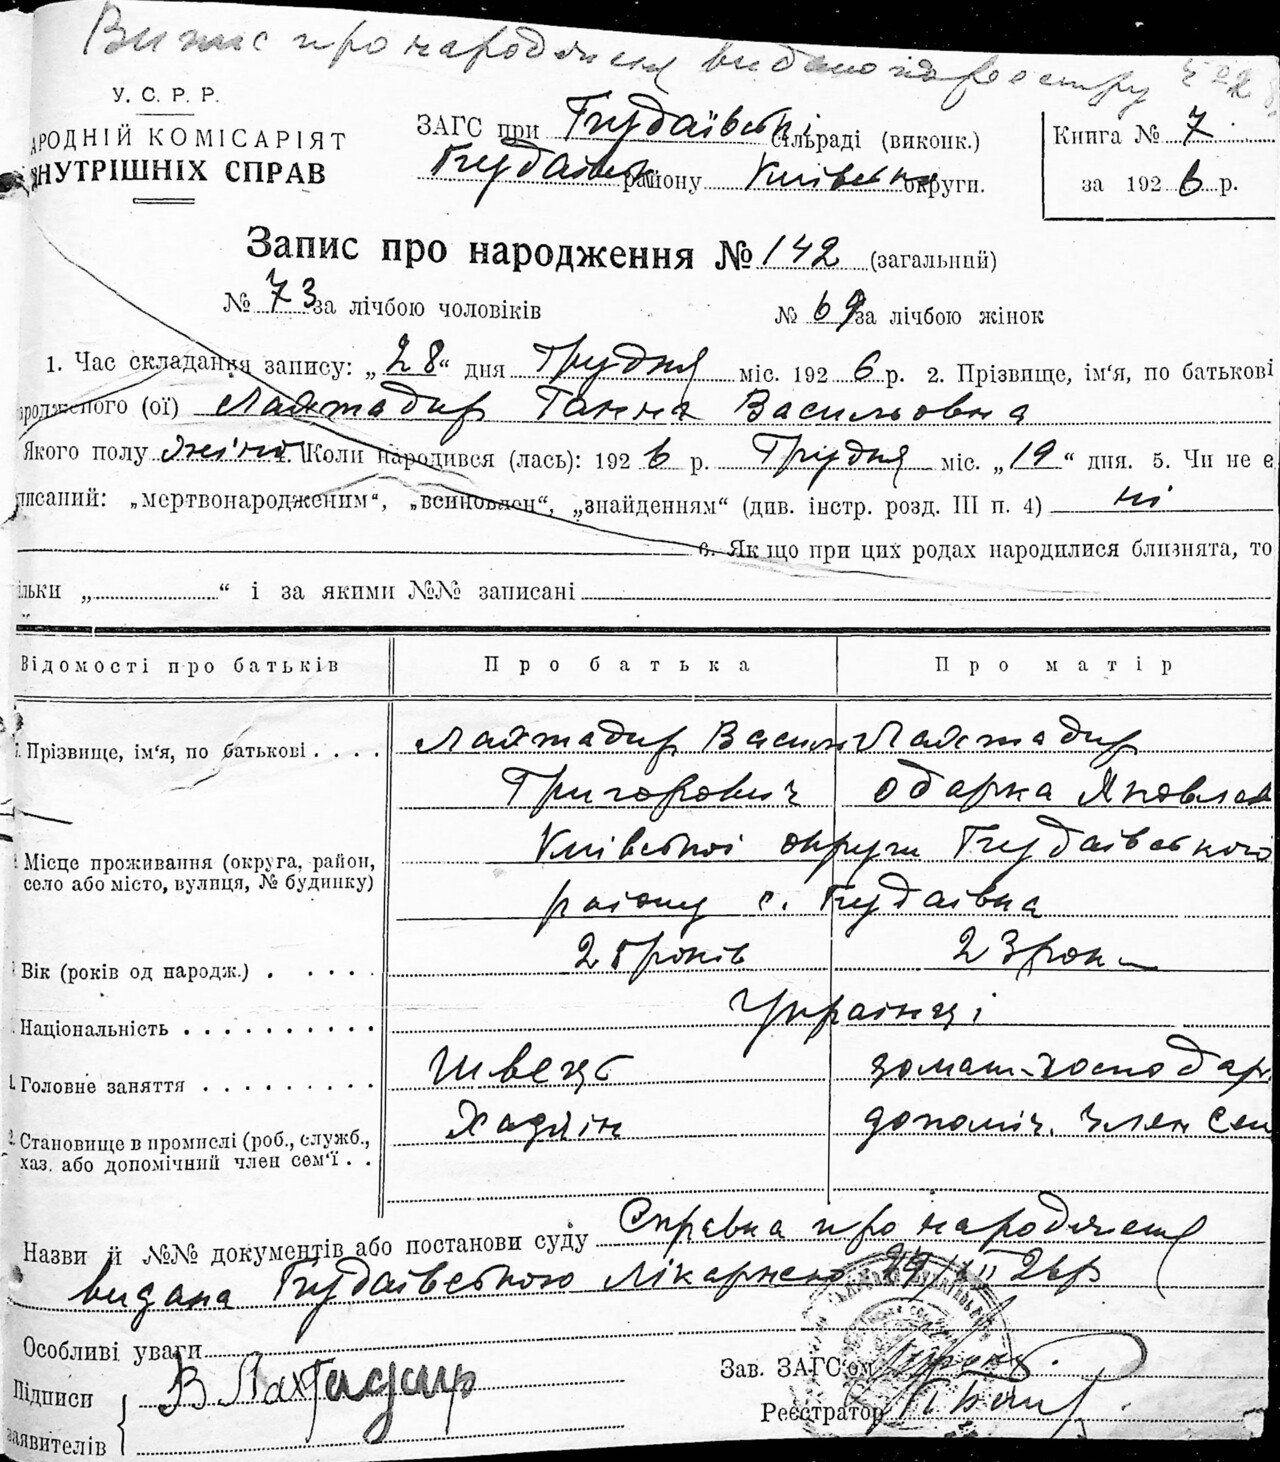 Випис про народження видано
У. С. Р. Р.
АРОДНІЙ КОМІСАРІЯТ
ВНУТРІШНІХ СПРАВ
ЗАГС при Гнудаївські сільраді (виконк.)
району Київської округи.
Книга № 7
за 1926 р.
Запис про народження № 142 (загальний)
№ 73 за лічбою чоловіків № 69 за лічбою жінок
1. Час складання запису: „28“ дня Грудня міс. 1926 р. 2. Прізвище, ім'я, по батькові
ародженого (ої) Лахтадир Ганна Васильовна
Якого полу жіноч 4. Коли народився (лась): 1926 р. Грудня міс. „19“ дня. 5. Чи не є
писаний: „мертвонародженим“, „всиновлен“, „знайденням“ (див. інстр. розд. III п. 4) ні
6. Як що при цих родах народилися близнята, то
ільки „ “ і за якими №№ записані
Відомості про батьків Про батька Про матір
7. Прізвище, ім'я, по батькові . . . . Лахтадир Василь Лахтадир
Григорович Одарка Яковлев
Місце проживання (округа, район, село або місто, вулиця, № будинку) Київської округи
району с.
Вік (років од народж.) . . . . . років 23 роки
Національність . . . . . . . . . . Українці
Головне заняття . . . . . . . . . Швець домаш. господар.
Становище в промислі (роб., служб., Хазяїн допоміч. член сем
хаз. або допомічний член сем'ї . .
Назви й №№ документів або постанови суду Справка про народження
видана Лікарнею 29/XII 26р
Особливі уваги
Підписи В Лахтадир
заявителів
Зав. ЗАГС'ом
Реєстратор